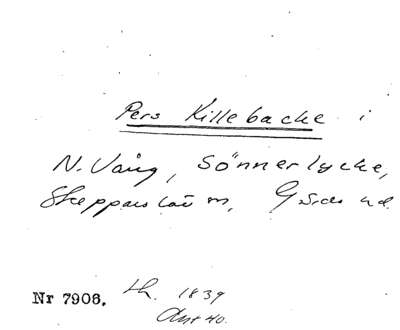 Pers Killebacke i
N. Vång, Sönnerlycke,
Skepparslöv sn, Gärds hd.
Nr 7906. lh. 1839
Akt 40.